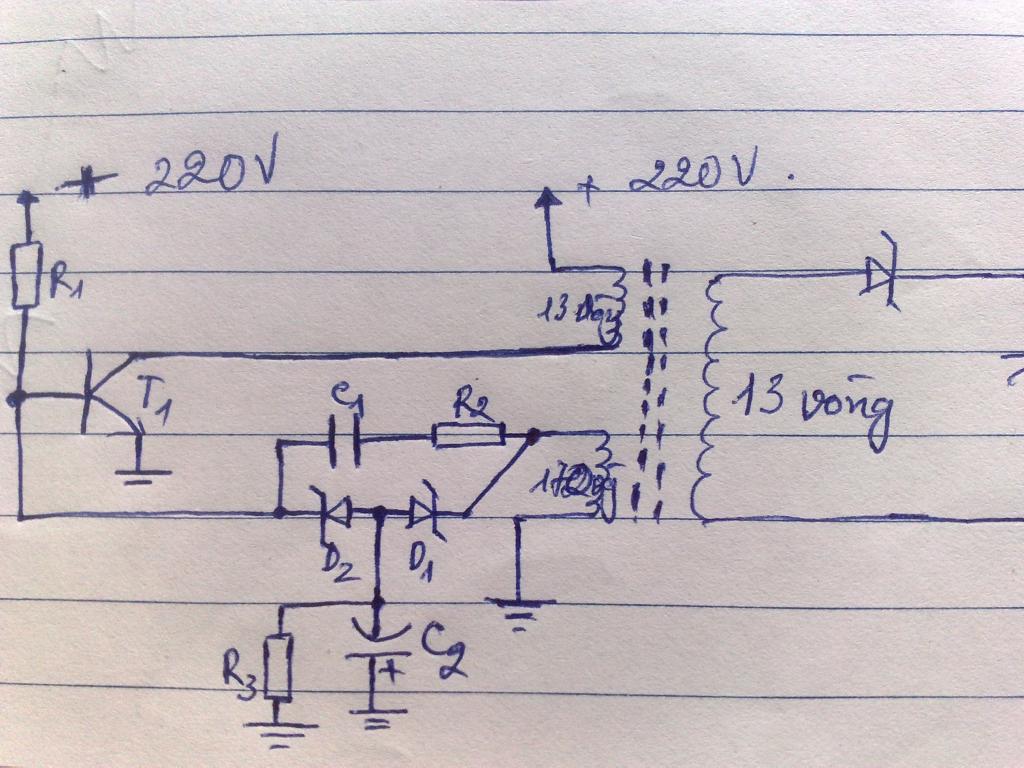 + 220V
+ 220V.
R1
13 vòng
T1
C1
R2
13 vòng
D2
D1
R3
C2
+